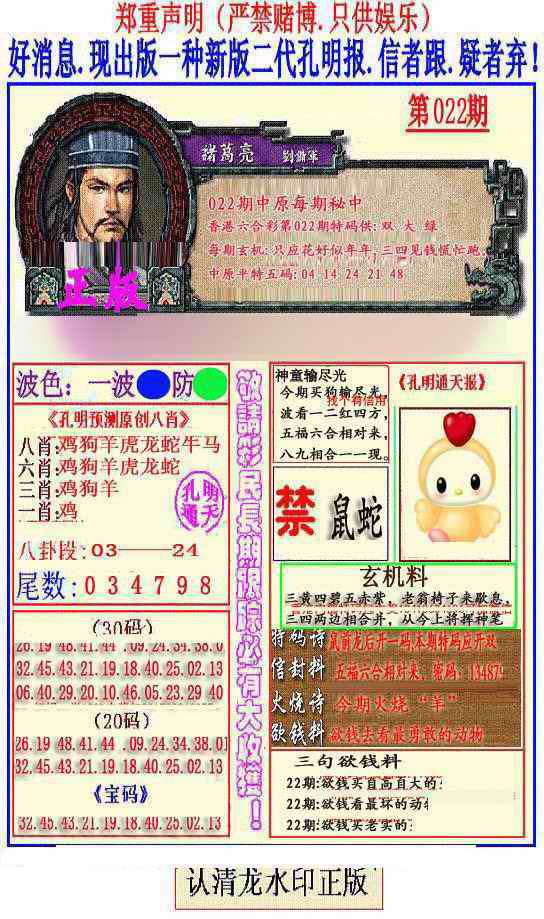 郑重声明（严禁赌博.只供娱乐）
好消息.现出版一种新版二代孔明报.信者跟.疑者弃！
第022期
諸葛亮 劉備軍
022期中原每期秘中
香港六合彩第022期特码供:双 大 绿
每期玄机:只应花好似年年,三四见钱慌忙跑
中原平特五码:04 14 24 21 48
正版
波色：一波 防
《孔明预测原创八肖》
八肖:鸡狗羊虎龙蛇牛马
六肖:鸡狗羊虎龙蛇
三肖:鸡狗羊
一肖:鸡
孔明
通天
八卦段:03——24
尾数:034798
(30码)
32.45.43.21.19.18.40.25.02.13
06.40.29.20.10.46.05.23.29.40
(20码)
26.19 48.41.44 .09.24.34.38.01
32.45.43.21.19.18.40.25.02.13
《宝码》
32.45.43.21.19.18.40.25.02.13
敬請彩民長期跟踪必有大收獲！
神童输尽光
今期买狗输尽光,
找个有信用
波看一二红四方,
五福六合相对来,
八九相合一一现。
《孔明通天报》
禁 鼠蛇
玄机料
三黄四碧五赤紫，老翁椅子来歇息，
三四两边相合并，从今上将挥神笔
特码诗 鼠前龙后开一码,本期特码应开双
信封料 五福六合相对来，密码：134879
火烧诗 今期火烧“羊”
欲钱料 欲钱去看最勇敢的动物
三句欲钱料
22期:欲钱买直高直大的:
22期:欲钱看最坏的动
22期:欲钱买老实的:
认清龙水印正版